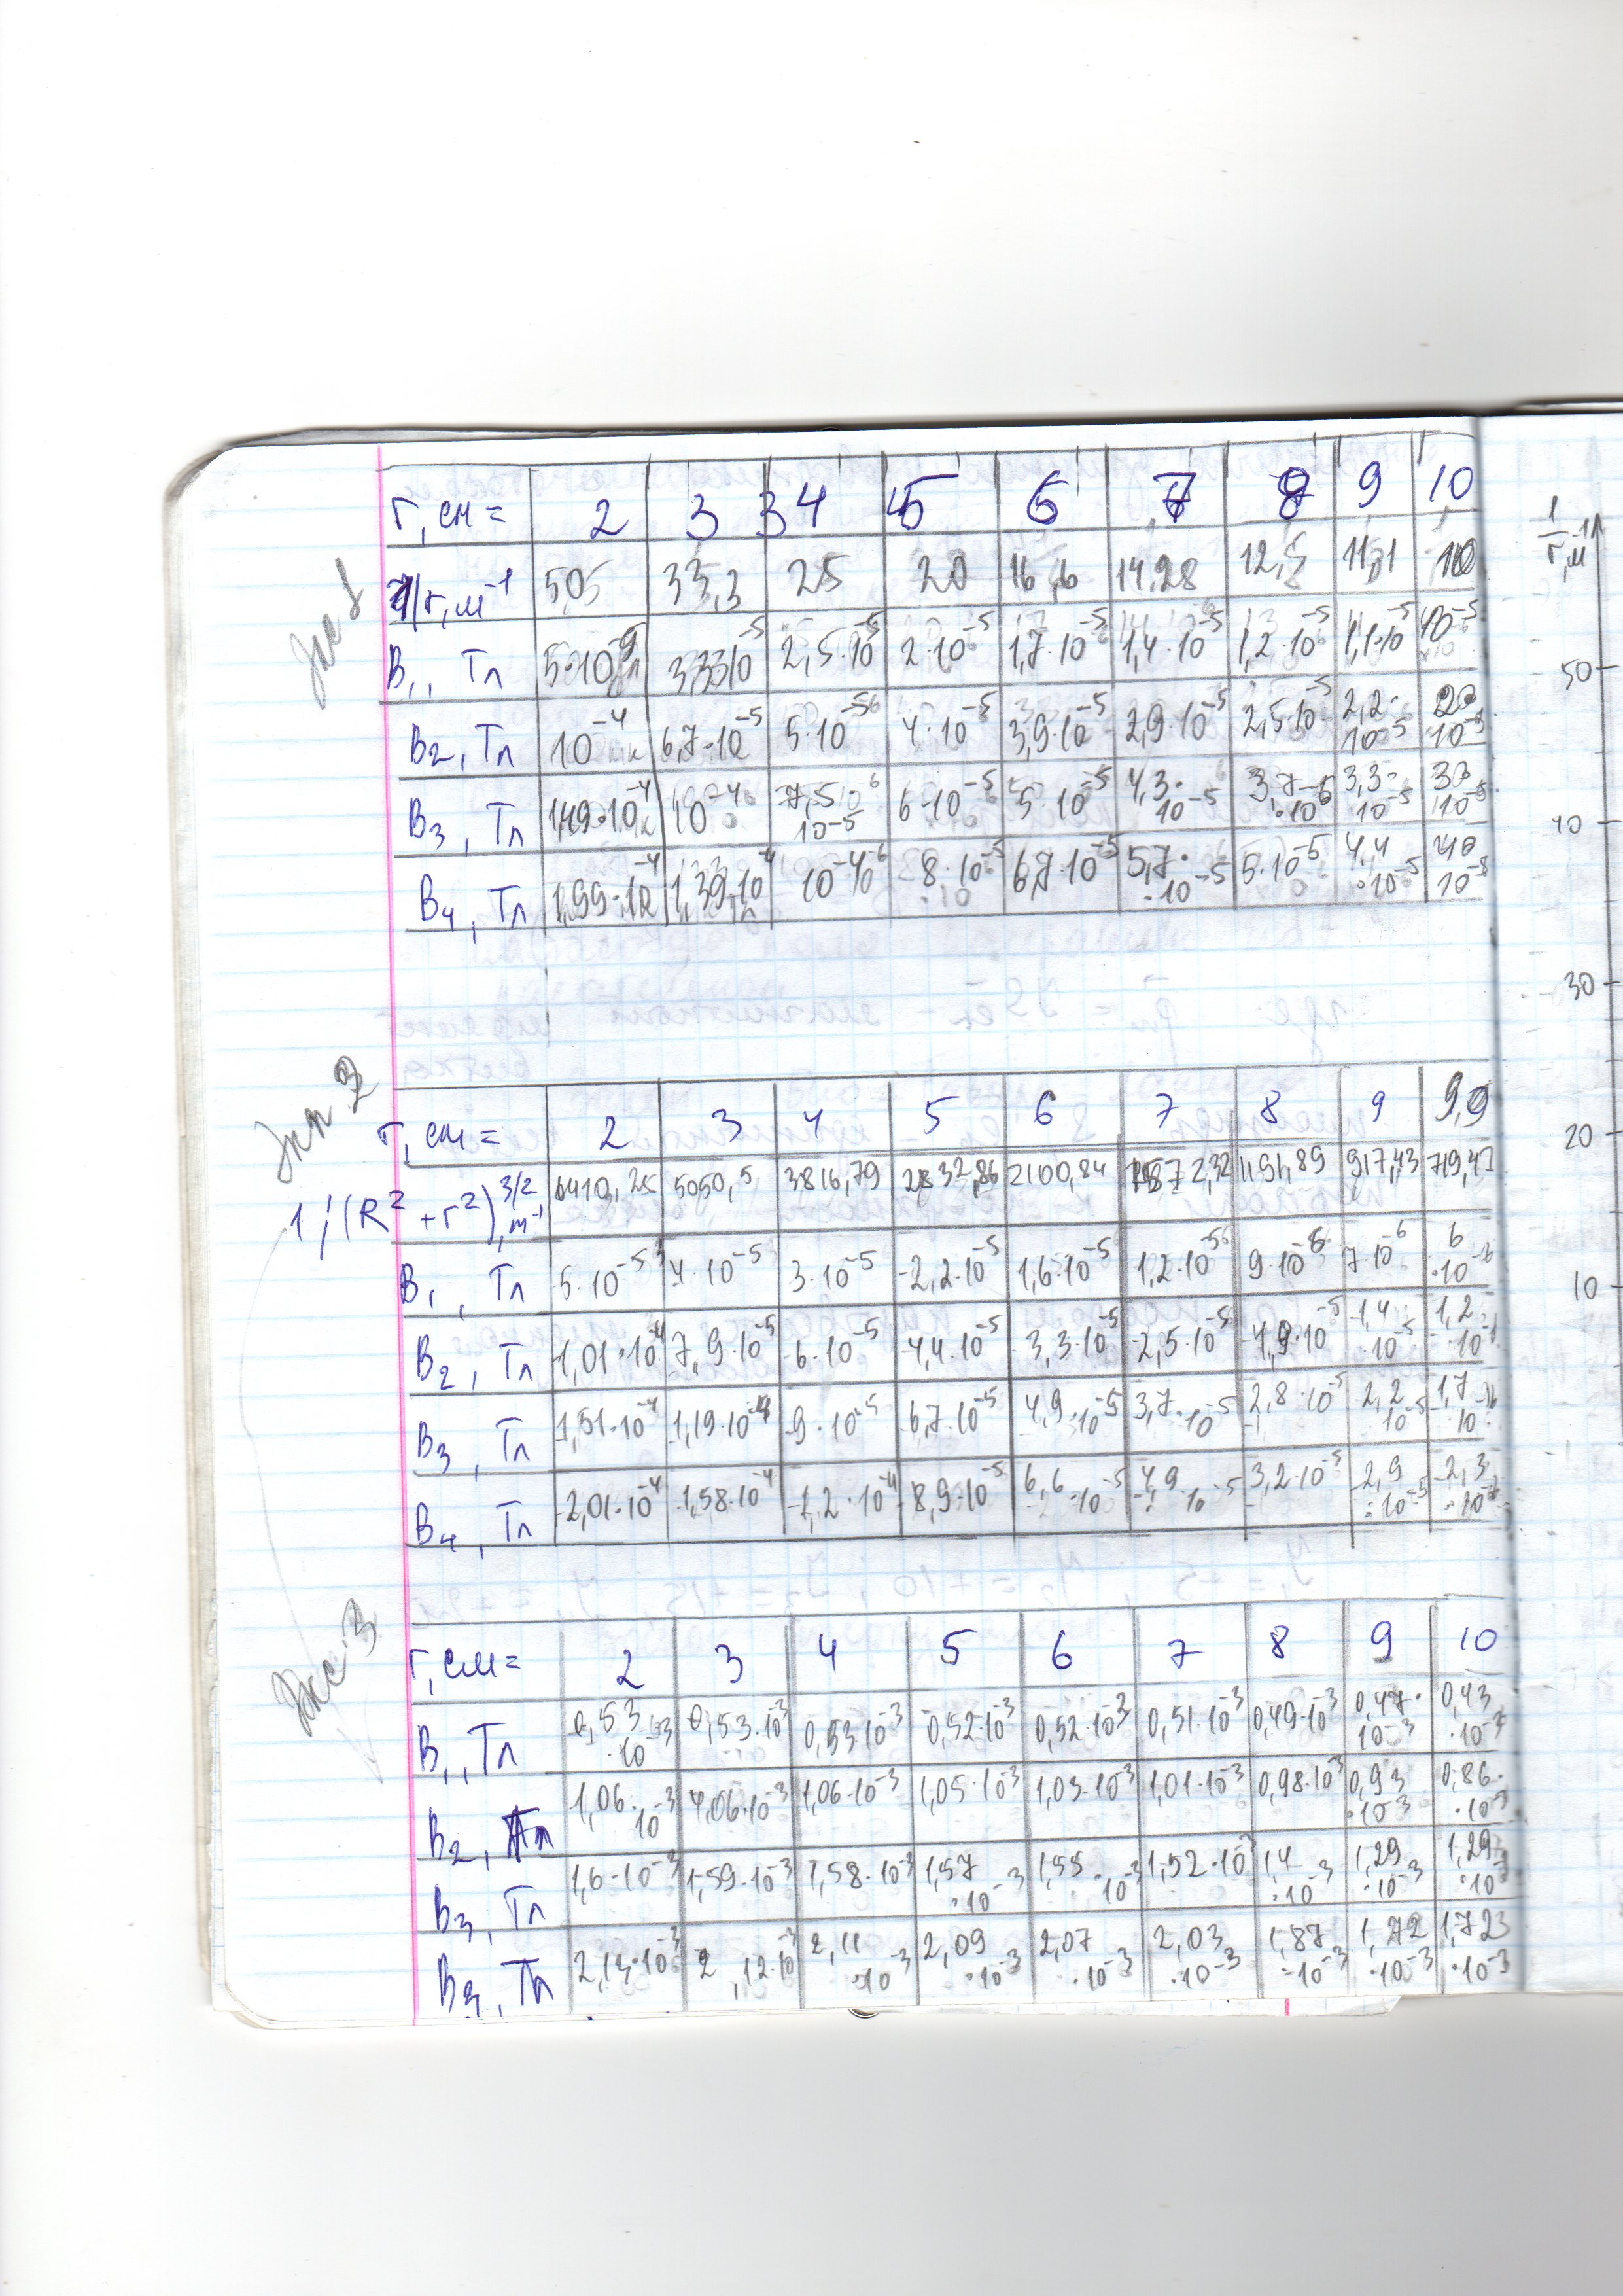 Экс 1
r, см = 2 3 4 5 6 7 8 9 10
1/r, м⁻¹ 50 33,3 25 20 16,6 14,28 12,5 11,1 10
B₁, Тл 5·10⁻⁵ 3,33·10⁻⁵ 2,5·10⁻⁵ 2·10⁻⁵ 1,7·10⁻⁵ 1,4·10⁻⁵ 1,2·10⁻⁵ 1,1·10⁻⁵ 10⁻⁵
B₂, Тл 10⁻⁴ 6,7·10⁻⁵ 5·10⁻⁵ 4·10⁻⁵ 3,9·10⁻⁵ 2,9·10⁻⁵ 2,5·10⁻⁵ 2,2·10⁻⁵
B₃, Тл 1,49·10⁻⁴ 10⁻⁴ 7,5·10⁻⁵ 6·10⁻⁵ 5·10⁻⁵ 4,3·10⁻⁵ 3,7·10⁻⁵ 3,3·10⁻⁵
B₄, Тл 1,99·10⁻⁴ 1,39·10⁻⁴ 10⁻⁴ 8·10⁻⁵ 6,7·10⁻⁵ 5,7·10⁻⁵ 5·10⁻⁵ 4,4·10⁻⁵
Эксп 2
r, см = 2 3 4 5 6 7 8 9 9,9
1/(R² + r²)^3/2, м⁻¹ 6410,25 5050,5 3816,79 2832,86 2100,84 1572,32 1191,89 917,43 719,42
B₁, Тл 5·10⁻⁵ 4·10⁻⁵ 3·10⁻⁵ 2,2·10⁻⁵ 1,6·10⁻⁵ 1,2·10⁻⁵ 9·10⁻⁶ 7·10⁻⁶ 6·10⁻⁶
B₂, Тл 1,01·10⁻⁴ 7,9·10⁻⁵ 6·10⁻⁵ 4,4·10⁻⁵ 3,3·10⁻⁵ 2,5·10⁻⁵ 1,9·10⁻⁵ 1,4·10⁻⁵
B₃, Тл 1,51·10⁻⁴ 1,19·10⁻⁴ 9·10⁻⁵ 6,7·10⁻⁵ 4,9·10⁻⁵ 3,7·10⁻⁵ 2,8·10⁻⁵ 2,2·10⁻⁵
B₄, Тл 2,01·10⁻⁴ 1,58·10⁻⁴ 1,2·10⁻⁴ 8,9·10⁻⁵ 6,6·10⁻⁵ 4,9·10⁻⁵ 3,2·10⁻⁵ 2,9·10⁻⁵
Экс 3
r, см = 2 3 4 5 6 7 8 9 10
B₁, Тл 0,53·10⁻³ 0,53·10⁻³ 0,53·10⁻³ 0,52·10⁻³ 0,52·10⁻³ 0,51·10⁻³ 0,49·10⁻³ 0,47·10⁻³ 0,43·10⁻³
B₂, Тл 1,06·10⁻³ 1,06·10⁻³ 1,06·10⁻³ 1,05·10⁻³ 1,03·10⁻³ 1,01·10⁻³ 0,98·10⁻³ 0,93·10⁻³ 0,86·10⁻³
B₃, Тл 1,6·10⁻³ 1,59·10⁻³ 1,58·10⁻³ 1,57·10⁻³ 1,55·10⁻³ 1,52·10⁻³ 1,4·10⁻³ 1,29·10⁻³ 1,29·10⁻³
B₄, Тл 2,13·10⁻³ 2,12·10⁻³ 2,11·10⁻³ 2,09·10⁻³ 2,07·10⁻³ 2,03·10⁻³ 1,87·10⁻³ 1,72·10⁻³ 1,723·10⁻³
1/r, м⁻¹
50
40
30
20
10